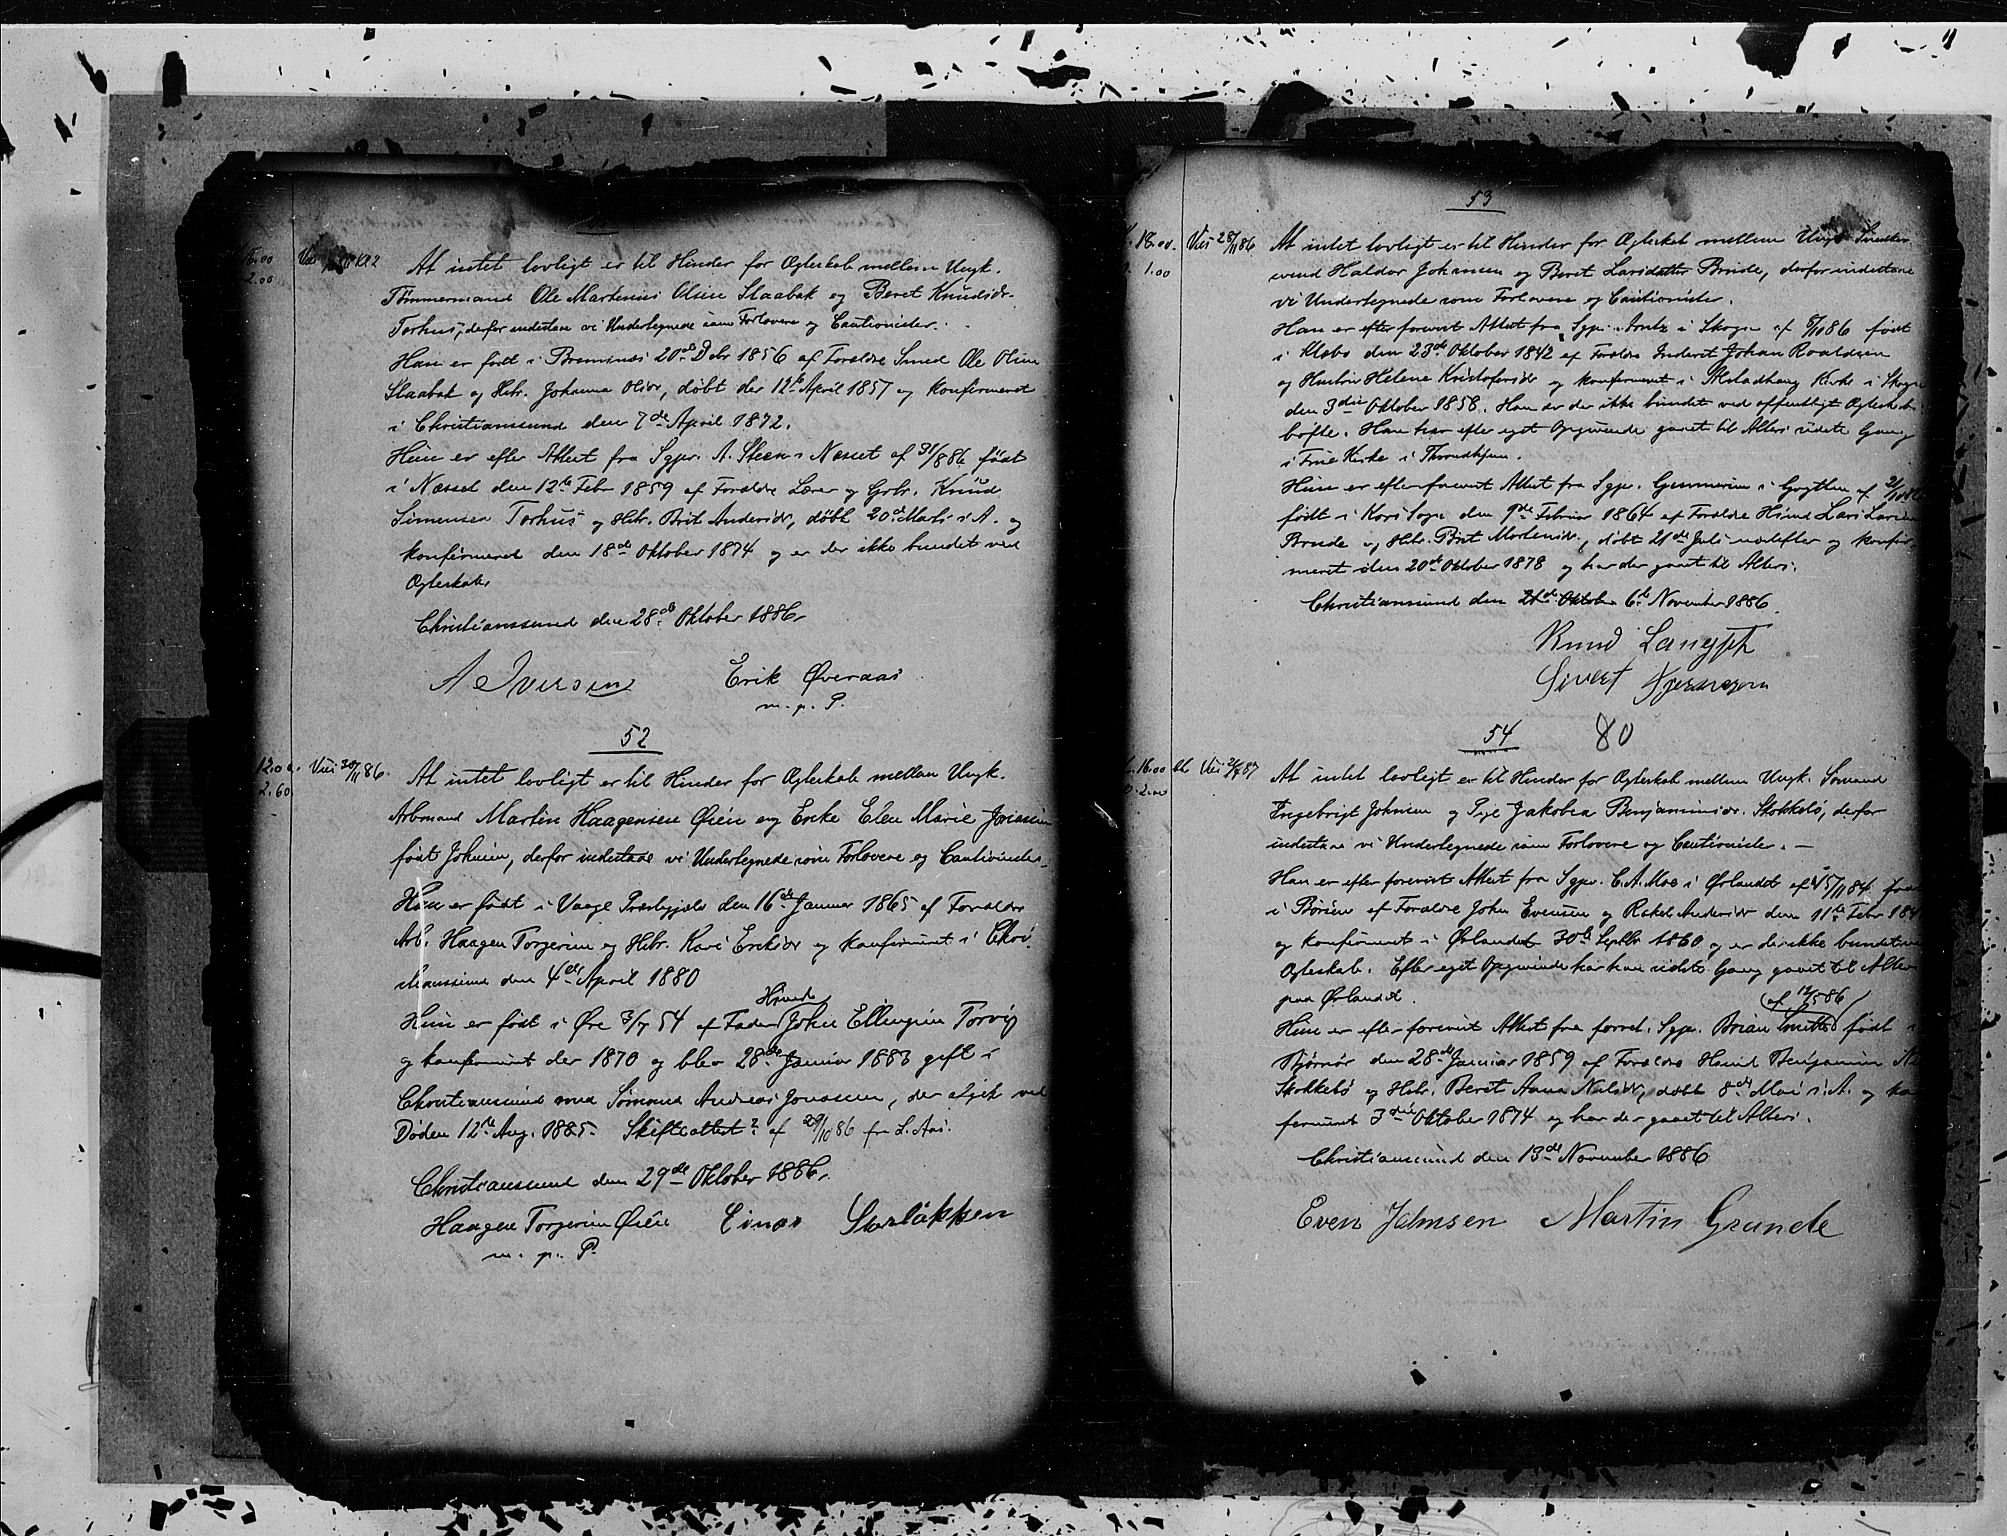 15.00
2.00
Viet
At intet lovligt er til Hinder for Ægteskab mellem Ungk.
Tømmermand Ole Martenius Olsen Staabak og Beret Knudsdr.
Torhus, derfor indestaae vi Undertegnede som Forlovere og Cautionister.
Han er født i Bremsnes 20de Debr 1856 af Forældre Smed Ole Olsen
Staabak og Hstr. Johanna Olsdr, døbt der 12te April 1857 og konfirmeret
i Christianssund den 7de April 1872.
Hun er efter Attest fra Sgpr. A. Steen i Næsset af 31/8 86 født
i Næsset den 12te Febr 1859 af Forældre Lærer og Grbr. Knud
Simensen Torhus og Hstr. Brit Andersdr, døbt 20de Marts s. A. og
konfirmeret den 18de Oktober 1874 og er der ikke bundet ved
Ægteskab.
Christianssund den 28de Oktober 1886.
A Iversen Erik Øveraas
m. p. P.
52
12.00
2.60
Viet 30/11 86.
At intet lovligt er til Hinder for Ægteskab mellem Ungk.
Arbmand Martin Haagensen Øien og Enke Elen Marie Jonassen
født Johnsen, derfor indestaae vi Undertegnede som Forlovere og Cautionister.
Han er født i Vaage Præstegjeld den 16de Januar 1865 af Forældre
Arb. Haagen Torgersen og Hstr. Kari Eriksdr og konfirmeret i Chri-
stianssund den 4de April 1880
Hun er født i Øre 3/7 54 af Fader Husmd John Ellingsen Torvig
og konfirmeret der 1870 og blev 28de Januar 1883 gift i
Christianssund med Sømand Andreas Jonassen, der afgik ved
Døden 12te Aug. 1885. Skifteattest af 29/10 86 fra L. Aas.
Christianssund den 29de Oktober 1886.
Haagen Torgersen Øien Einar Storløkken
m. p. P.
53
18.00
1.00
Viet 28/11 86
At intet lovligt er til Hinder for Ægteskab mellem Ungk.
Haldor Johansen og Beret Larsdatter Brude, derfor indestaae
vi Undertegnede som Forlovere og Cautionister.
Han er efter forevist Attest fra Sgpr. Arntz i Skogn af 86 født
i Klæbo den 23de Oktober 1842 af Forældre Inderst Johan Roaldsen
og Hustru Helene Kristofersdr og konfirmeret i Kirke i Skogn
den 3die Oktober 1858. Han er der ikke bundet ved offentligt Ægteskabs-
løfte. Han har efter eget Opgivende gaaet til Alters sidste Gang
i Frue Kirke i Throndhjem.
Hun er efter forevist Attest fra Sgpr. i Grytten af
født i Kors Sogn den 9de Februar 1864 af Forældre Husmd Lars Larsen
Brude og Hstr. Brit Mortensdr, døbt 21de Juli næstefter og konfir-
meret den 20de Oktober 1878 og har der gaaet til Alters.
Christianssund den 21de Oktober 6te November 1886.
Knud Langseth
Sivert
54
80
16.00
2.00
Viet 87
At intet lovligt er til Hinder for Ægteskab mellem Ungk. Sømand
Ingebrigt Johnsen og Pige Jakobea Benjaminsdr. Stokkebø, derfor
indestaae vi Undertegnede som Forlovere og Cautionister.
Han er efter forevist Attest fra Sgpr. C. A. Moe i Ørlandet af 15/11 84 født
i Børsen af Forældre John Evensen og Rakel Andersdr den 11te Febr 184
og konfirmeret i Ørlandet 30te Septbr 1860 og er der ikke bundet ved
Ægteskab. Efter eget Opgivende har han sidste Gang gaaet til Alters
paa Ørlandet.
(af 12/5 86)
Hun er efter forevist Attest fra forrel. Sgpr. Brian Smith født i
Stjørnør den 28de Januar 1859 af Forældre Husmd Benjamin
Stokkebø og Hstr. Beret Anna Nilsdr, døbt 8de Mai s. A. og kon
fermeret 3die Oktober 1874 og har der gaaet til Alters.
Christianssund den 13de November 1886
Even Johnsen Martin Grande